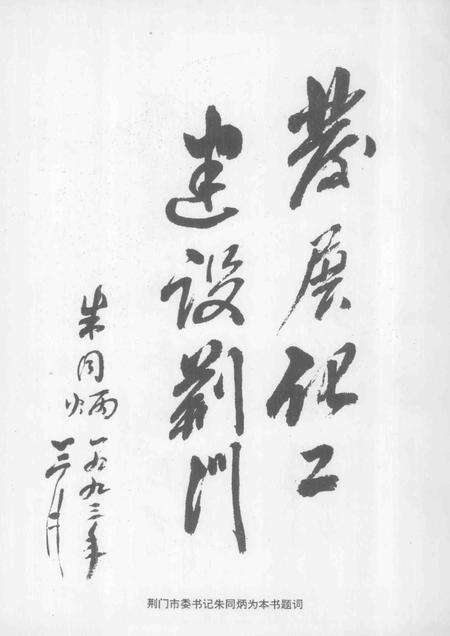 發展化工
建设荆门
朱同炳
一九九三年
三月
荆门市委书记朱同炳为本书题词